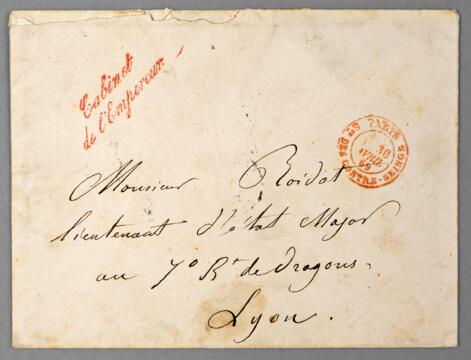 Cabinet
de l'Empereur
PARIS
10
AVRIL
69
CONTRE-SEINGS
Monsieur Roidot
lieutenant d'état Major
au 7e Rt de dragons.
Lyon.